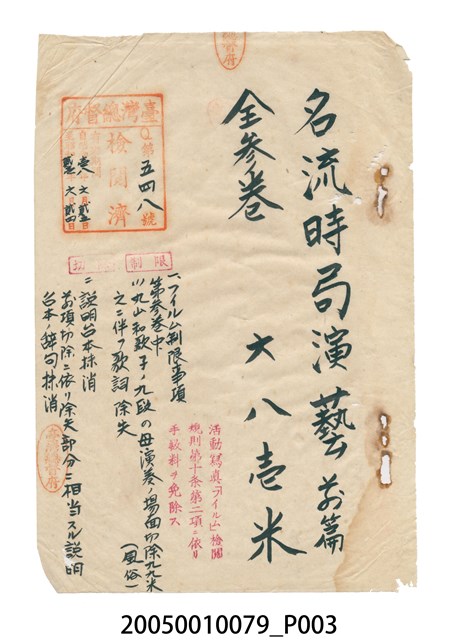 名流時局演藝 前篇
全参巻 六八壱米
臺灣總督府
第五四八號
檢閲濟
制限
一、フイルム制限事項
第参巻中
(1)丸山和歌子ノ九段の母演奏ノ場面切除九九米
之ニ伴フ歌詞除去
(風俗)
二 説明台本抹消
前項切除ニ依リ除去部分ニ相当スル説明
台本ノ辞句抹消
活動寫眞「フイルム」檢閲
規則第十条第二項ニ依リ
手数料ヲ免除ス
20050010079_P003